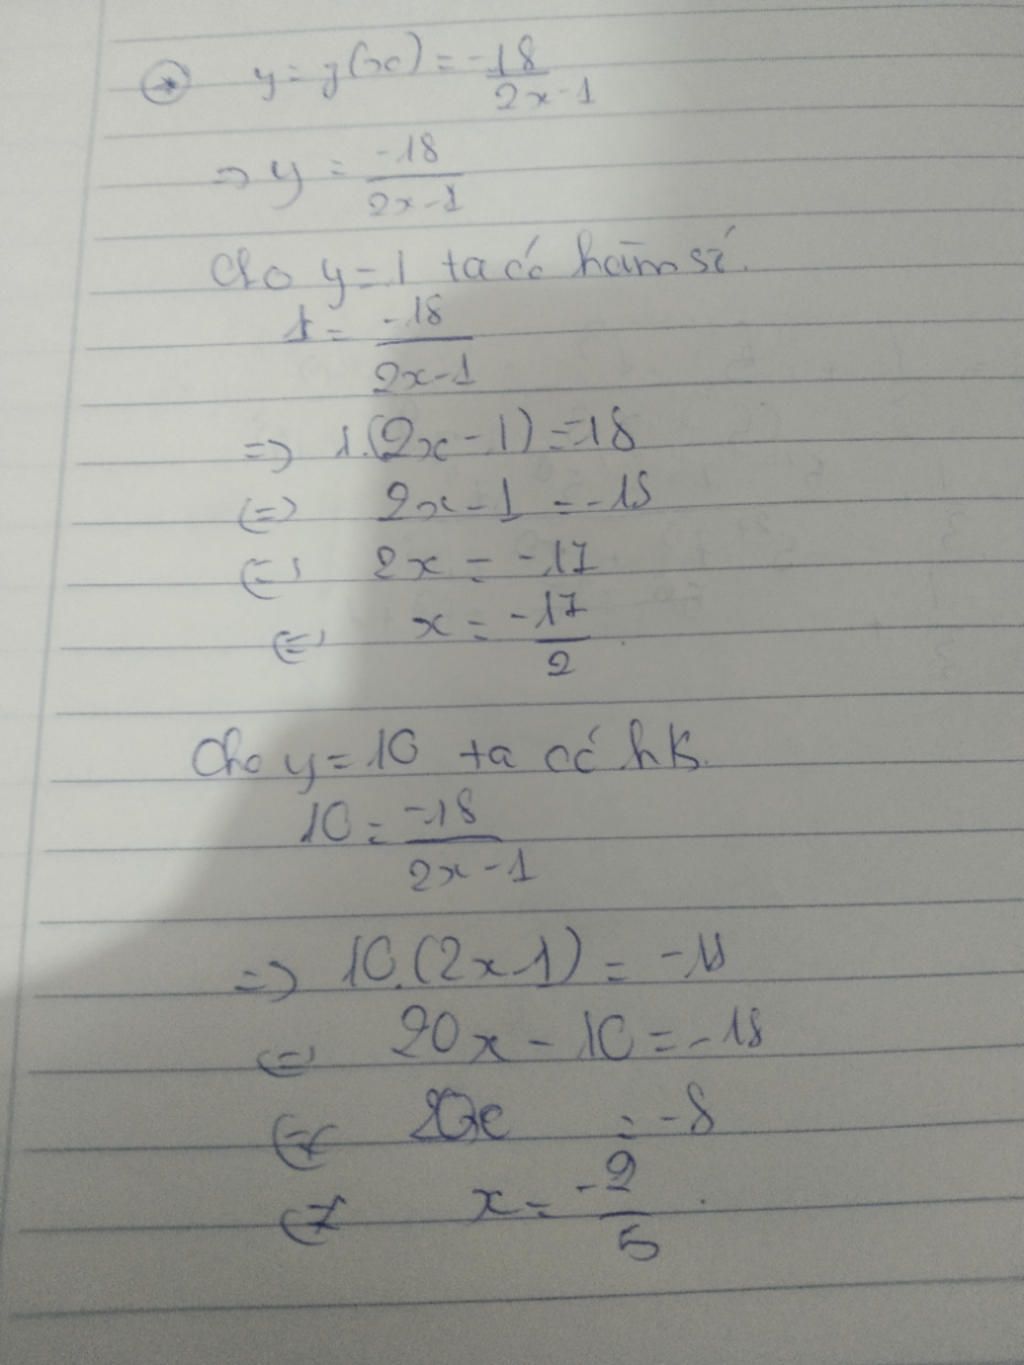 * y = g(x) = -18/(2x-1)
=> y = -18/(2x-1)
Cho y=1 ta có hàm số.
1 = -18/(2x-1)
=> 1.(2x-1) = -18
<=> 2x-1 = -18
<=> 2x = -17
<=> x = -17/2.
Cho y = 10 ta có hs.
10 = -18/(2x-1)
=> 10.(2x 1) = -18
<=> 20x - 10 = -18
<=> 20x = -8
<=> x = -2/5.